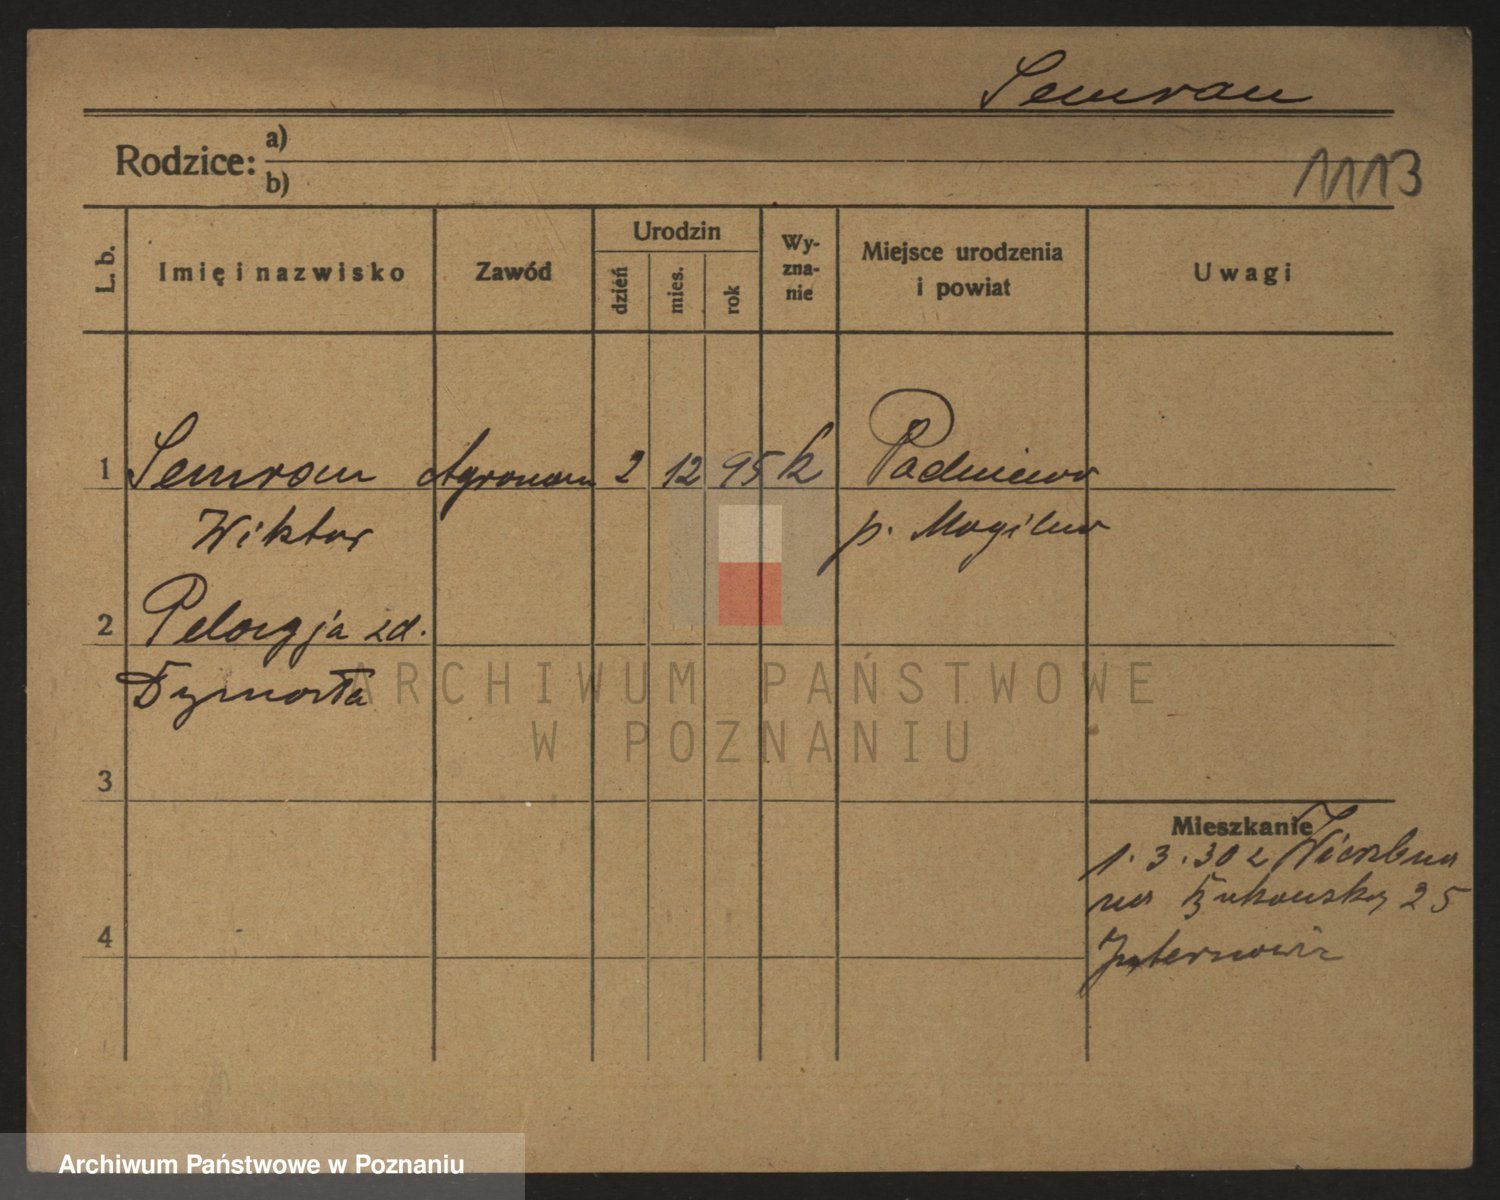 Semrau
Rodzice: a)
b)
1113
L. b.
Imię i nazwisko
Zawód
Urodzin
dzień
mies.
rok
Wy-
zna-
nie
Miejsce urodzenia
i powiat
Uwagi
1 Semrau Agronom 2 12 95 k Padniewo
Wiktor p. Mogilno
2 Pelagja zd.
Dymarła
3
4
Mieszkanie
1.3.30 z
na 25
ARCHIWUM PAŃSTWOWE
W POZNANIU
Archiwum Państwowe w Poznaniu